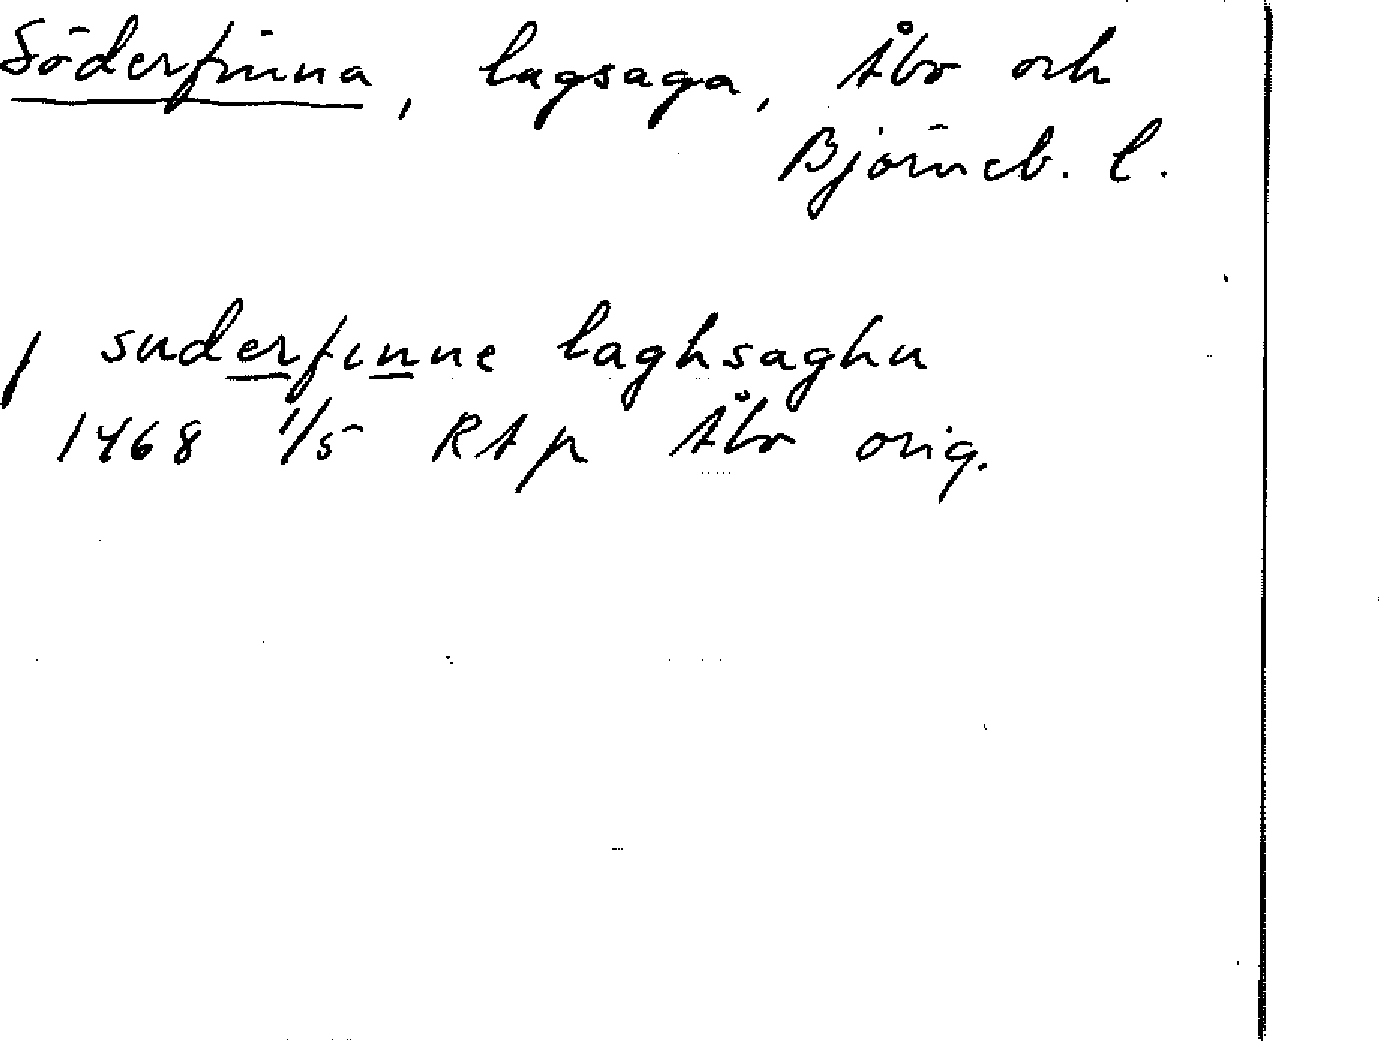 Söderfinna, lagsaga, Åbo och
Björneb. l.
j suderfinne laghsaghu
1468 1/5 RAp Åbo orig.